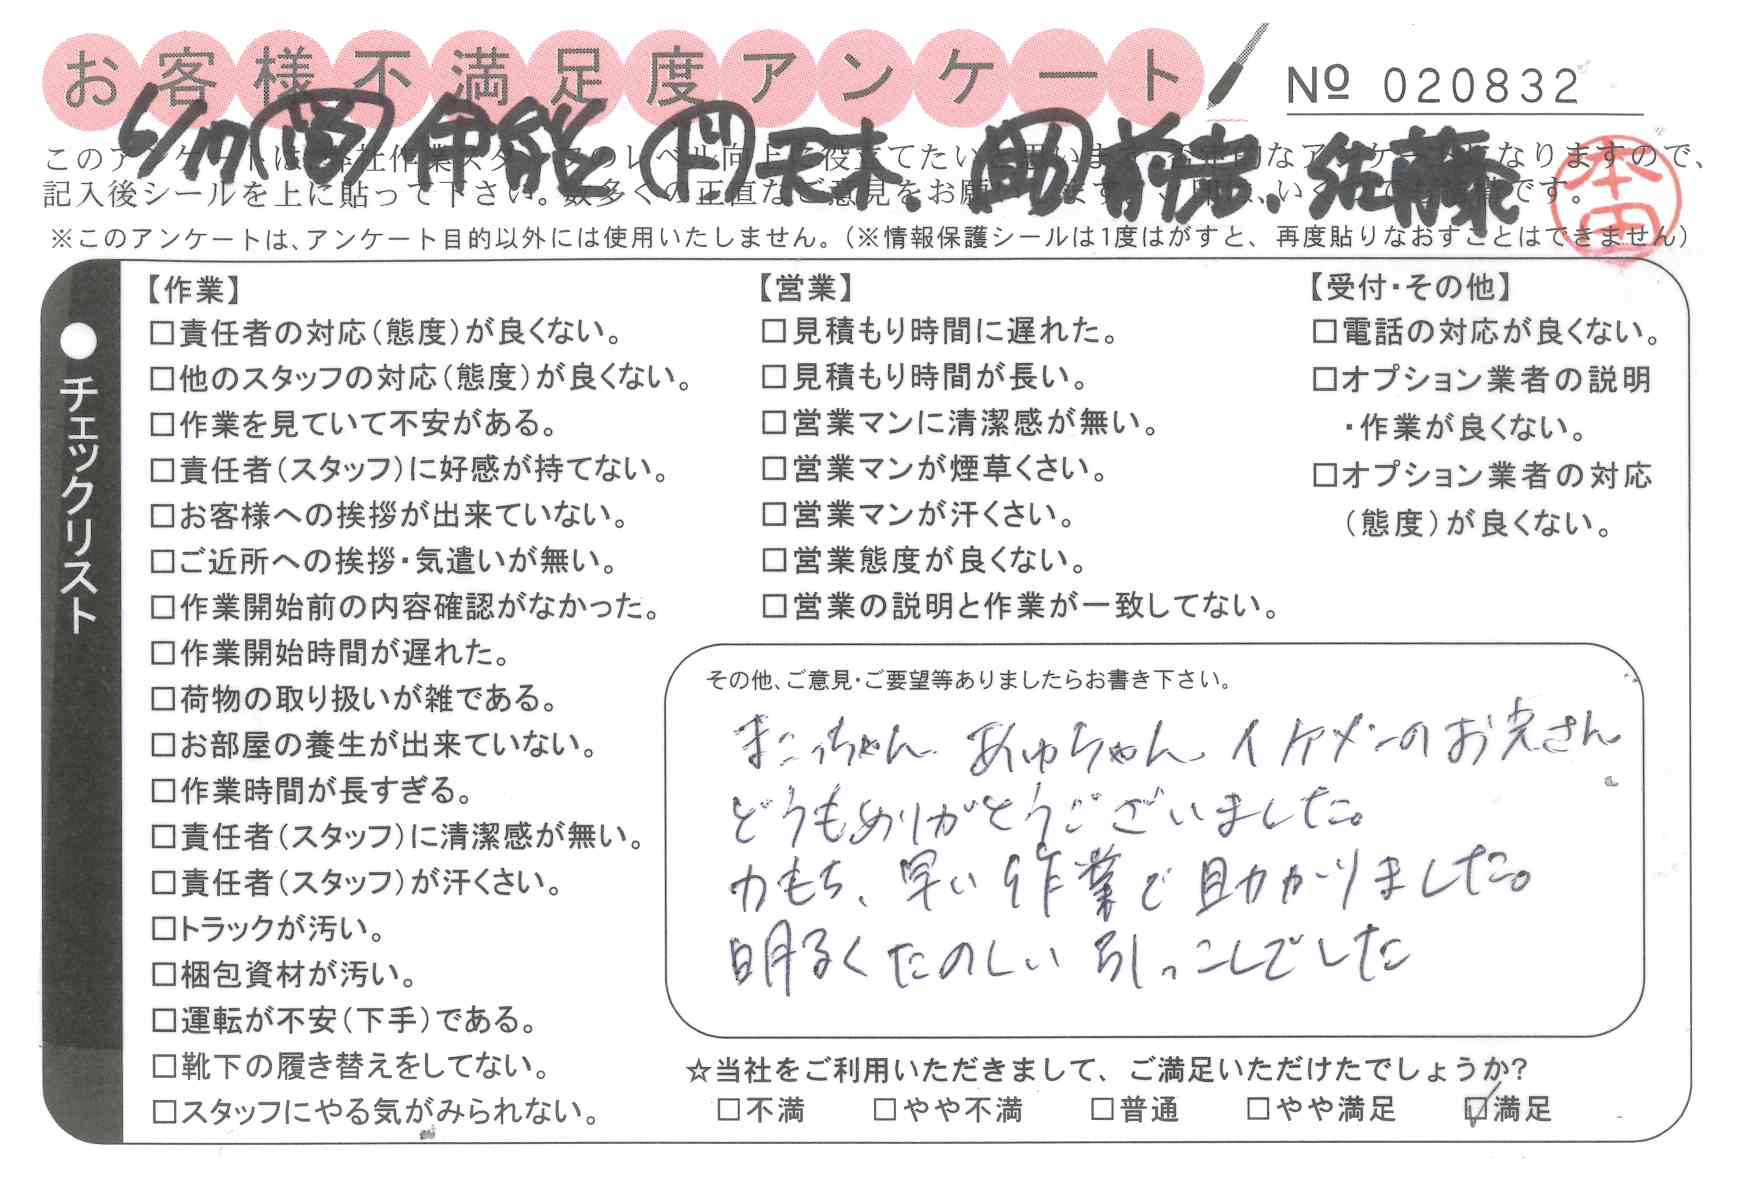 お客様不満足度アンケート
№ 020832
6/17 伊能 ド 天本、助 前溝、佐藤
このアンケートは、弊社作業スタッフのレベル向上に役立てたいと思います。否定的なアンケートになりますので、
記入後シールを上に貼って下さい。数多くの正直なご意見をお願いします。
本田
※このアンケートは、アンケート目的以外には使用いたしません。（※情報保護シールは1度はがすと、再度貼りなおすことはできません）
●チェックリスト
【作業】
□責任者の対応（態度）が良くない。
□他のスタッフの対応（態度）が良くない。
□作業を見ていて不安がある。
□責任者（スタッフ）に好感が持てない。
□お客様への挨拶が出来ていない。
□ご近所への挨拶・気遣いが無い。
□作業開始前の内容確認がなかった。
□作業開始時間が遅れた。
□荷物の取り扱いが雑である。
□お部屋の養生が出来ていない。
□作業時間が長すぎる。
□責任者（スタッフ）に清潔感が無い。
□責任者（スタッフ）が汗くさい。
□トラックが汚い。
□梱包資材が汚い。
□運転が不安（下手）である。
□靴下の履き替えをしてない。
□スタッフにやる気がみられない。
【営業】
□見積もり時間に遅れた。
□見積もり時間が長い。
□営業マンに清潔感が無い。
□営業マンが煙草くさい。
□営業マンが汗くさい。
□営業態度が良くない。
□営業の説明と作業が一致してない。
【受付・その他】
□電話の対応が良くない。
□オプション業者の説明
・作業が良くない。
□オプション業者の対応
（態度）が良くない。
その他、ご意見・ご要望等ありましたらお書き下さい。
まこっちゃん、あゆちゃん、イケメンのお兄さん
どうもありがとうございました。
力もち、早い作業で助かりました。
明るくたのしい引っこしでした
☆当社をご利用いただきまして、ご満足いただけたでしょうか?
□不満 □やや不満 □普通 □やや満足 ☑満足